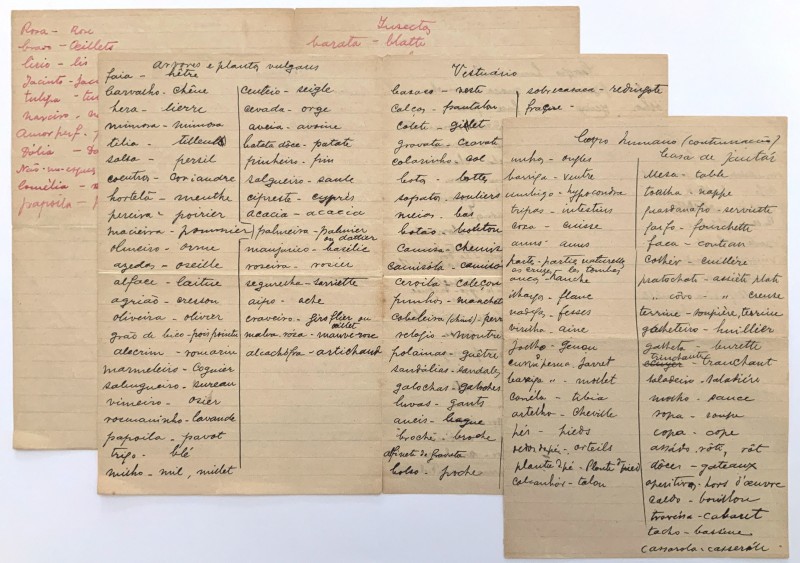 Rosa - Rose
cravo - Œillets
lirio - lis
Jacinto - Jac
tulipa - tu
narciso - na
Amor perf.
Dália - Da
Não-me-esques
Camélia -
papoila - p
Insectos
barata - blatte
Arvores e plantas vulgares
faia - hêtre
Carvalho - chêne
hera - lierre
mimosa - mimosa
tilia - tilleul
salsa - persil
coentros - coriandre
hortelã - menthe
pereira - poirier
macieira - pommier
olmeiro - orme
azedas - oseille
alface - laitue
agrião - cresson
oliveira - olivier
grão de bico - pois pointu
alecrim - romarin
marmeleiro - Cognier
sabugueiro - sureau
vimeiro - osier
rosmaninho - lavande
papoila - pavot
trigo - blé
milho - mil, millet
centeio - seigle
cevada - orge
aveia - avoine
batata dôce - patate
pinheiro - pin
salgueiro - saule
cipreste - cyprés
acacia - acacia
palmeira - palmier
ou dattier
manjerico - basilic
roseira - rosier
segurelha - sarriette
aipo - ache
craveiro - giroflier ou
œillet
malva rosa - mauve-rose
alcachôfra - artichaud
Vestuário
casaco - veste
calças - pantalon
colete - gillet
gravata - cravate
colarinho - col
botas - bottes
sapatos - souliers
meias - bas
botão - boutton
camisa - chemis
camisola - camiso
ceroila - caleçon
punhos - manchett
cabeleira (chinó) - perr
relogio - montre
polainas - guêtre
sandálias - sandales
galochas - galoches
luvas - gants
aneis - bague
broche - broche
alfinete de gravata
bolso - poche
sobrecasaca - redingote
fraque -
Corpo humano (continuação)
unhas - ongles
barriga - ventre
umbigo - hypocondre
tripas - intestins
coxa - cuisse
anus - anus
parte - parties naturelles
anca - hanche
ilhaga - flanc
nadegas - fesses
virilha - aine
Joelho - genou
curva da perna - Jarret
barriga " - mollet
canéla - tibia
artelho - cheville
pés - pieds
dedos do pé - orteils
planta do pé - Plante du pied
calcanhar - talon
Casa de jantar
Mesa - table
toalha - nappe
guardanapo - serviette
garfo - fourchette
faca - couteau
colhér - cuillère
prato chato - assiete plate
" côvo - " creuse
terrina - soupière, terrine
galheteiro - huillier
galheta - burette
trinchante - tranchant
saladeira - saladière
molho - sauce
sopa - soupe
copa - cope
assado, rôti, rôt
dôces - gateaux
aperitivos - hors d'œuvre
caldo - bouillon
travessa - cabaret
tacho - bassine
cassarola - casserôle